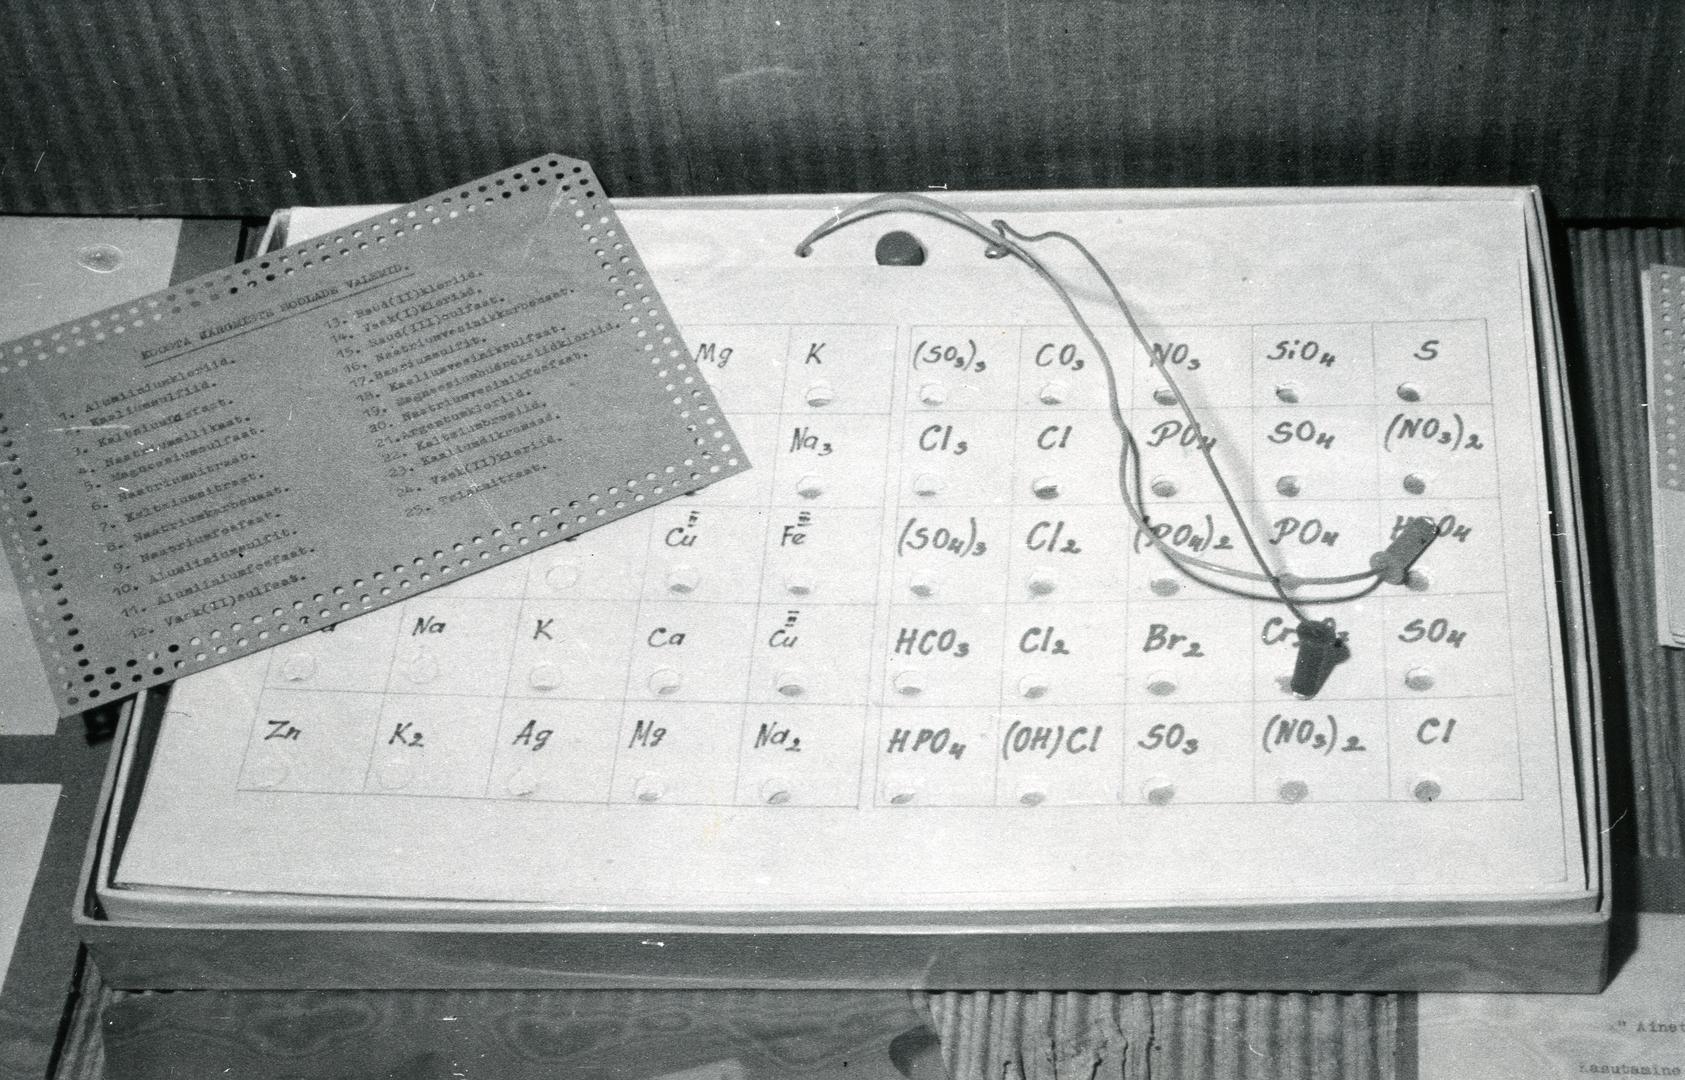 KOOSTA JÄRGMISTE SOOLADE VALEMID.
1. Alumiiniumkloriid.
2. Kaaliumsulfiid.
3. Kaltsiumfosfaat.
4. Naatriumsilikaat.
5. Magneesiumsulfaat.
6. Naatriumnitraat.
7. Kaltsiumnitraat.
8. Naatriumkarbonaat.
9. Naatriumfosfaat.
10. Alumiiniumsulfit.
11. Alumiiniumfosfaat.
12. Vask(II)sulfaat.
13. Raud(II)kloriid.
14. Vask(I)kloriid.
15. Raud(III)sulfaat.
16. Naatriumvesinikkarbonaat.
17. Baariumsulfit.
18. Kaaliumvesiniksulfaat.
19. Magneesiumhüdroksiidkloriid.
20. Naatriumvesinikfosfaat.
21. Argentumkloriid.
22. Kaltsiumbromiid.
23. Kaaliumdikromaad.
24. Vask(II)kloriid.
25. Tsinknitraat.
Mg K (SO₃)₃ CO₃ NO₃ SiO₄ S
Na₃ Cl₃ Cl PO₄ SO₄ (NO₃)₂
Cu Fe (SO₄)₃ Cl₂ (PO₄)₂ PO₄ HSO₄
Na K Ca Cu HCO₃ Cl₂ Br₂ Cr₂O₇ SO₄
Zn K₂ Ag Mg Na₂ HPO₄ (OH)Cl SO₃ (NO₃)₂ Cl
" Ainet
Kasutamine